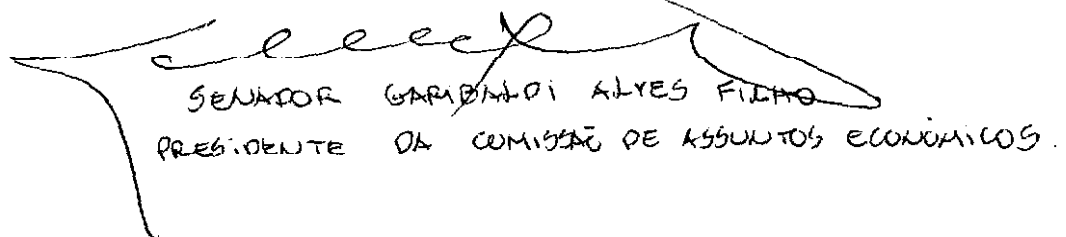 SENADOR GARIBALDI ALVES FILHO
PRESIDENTE DA COMISSÃO DE ASSUNTOS ECONÔMICOS.